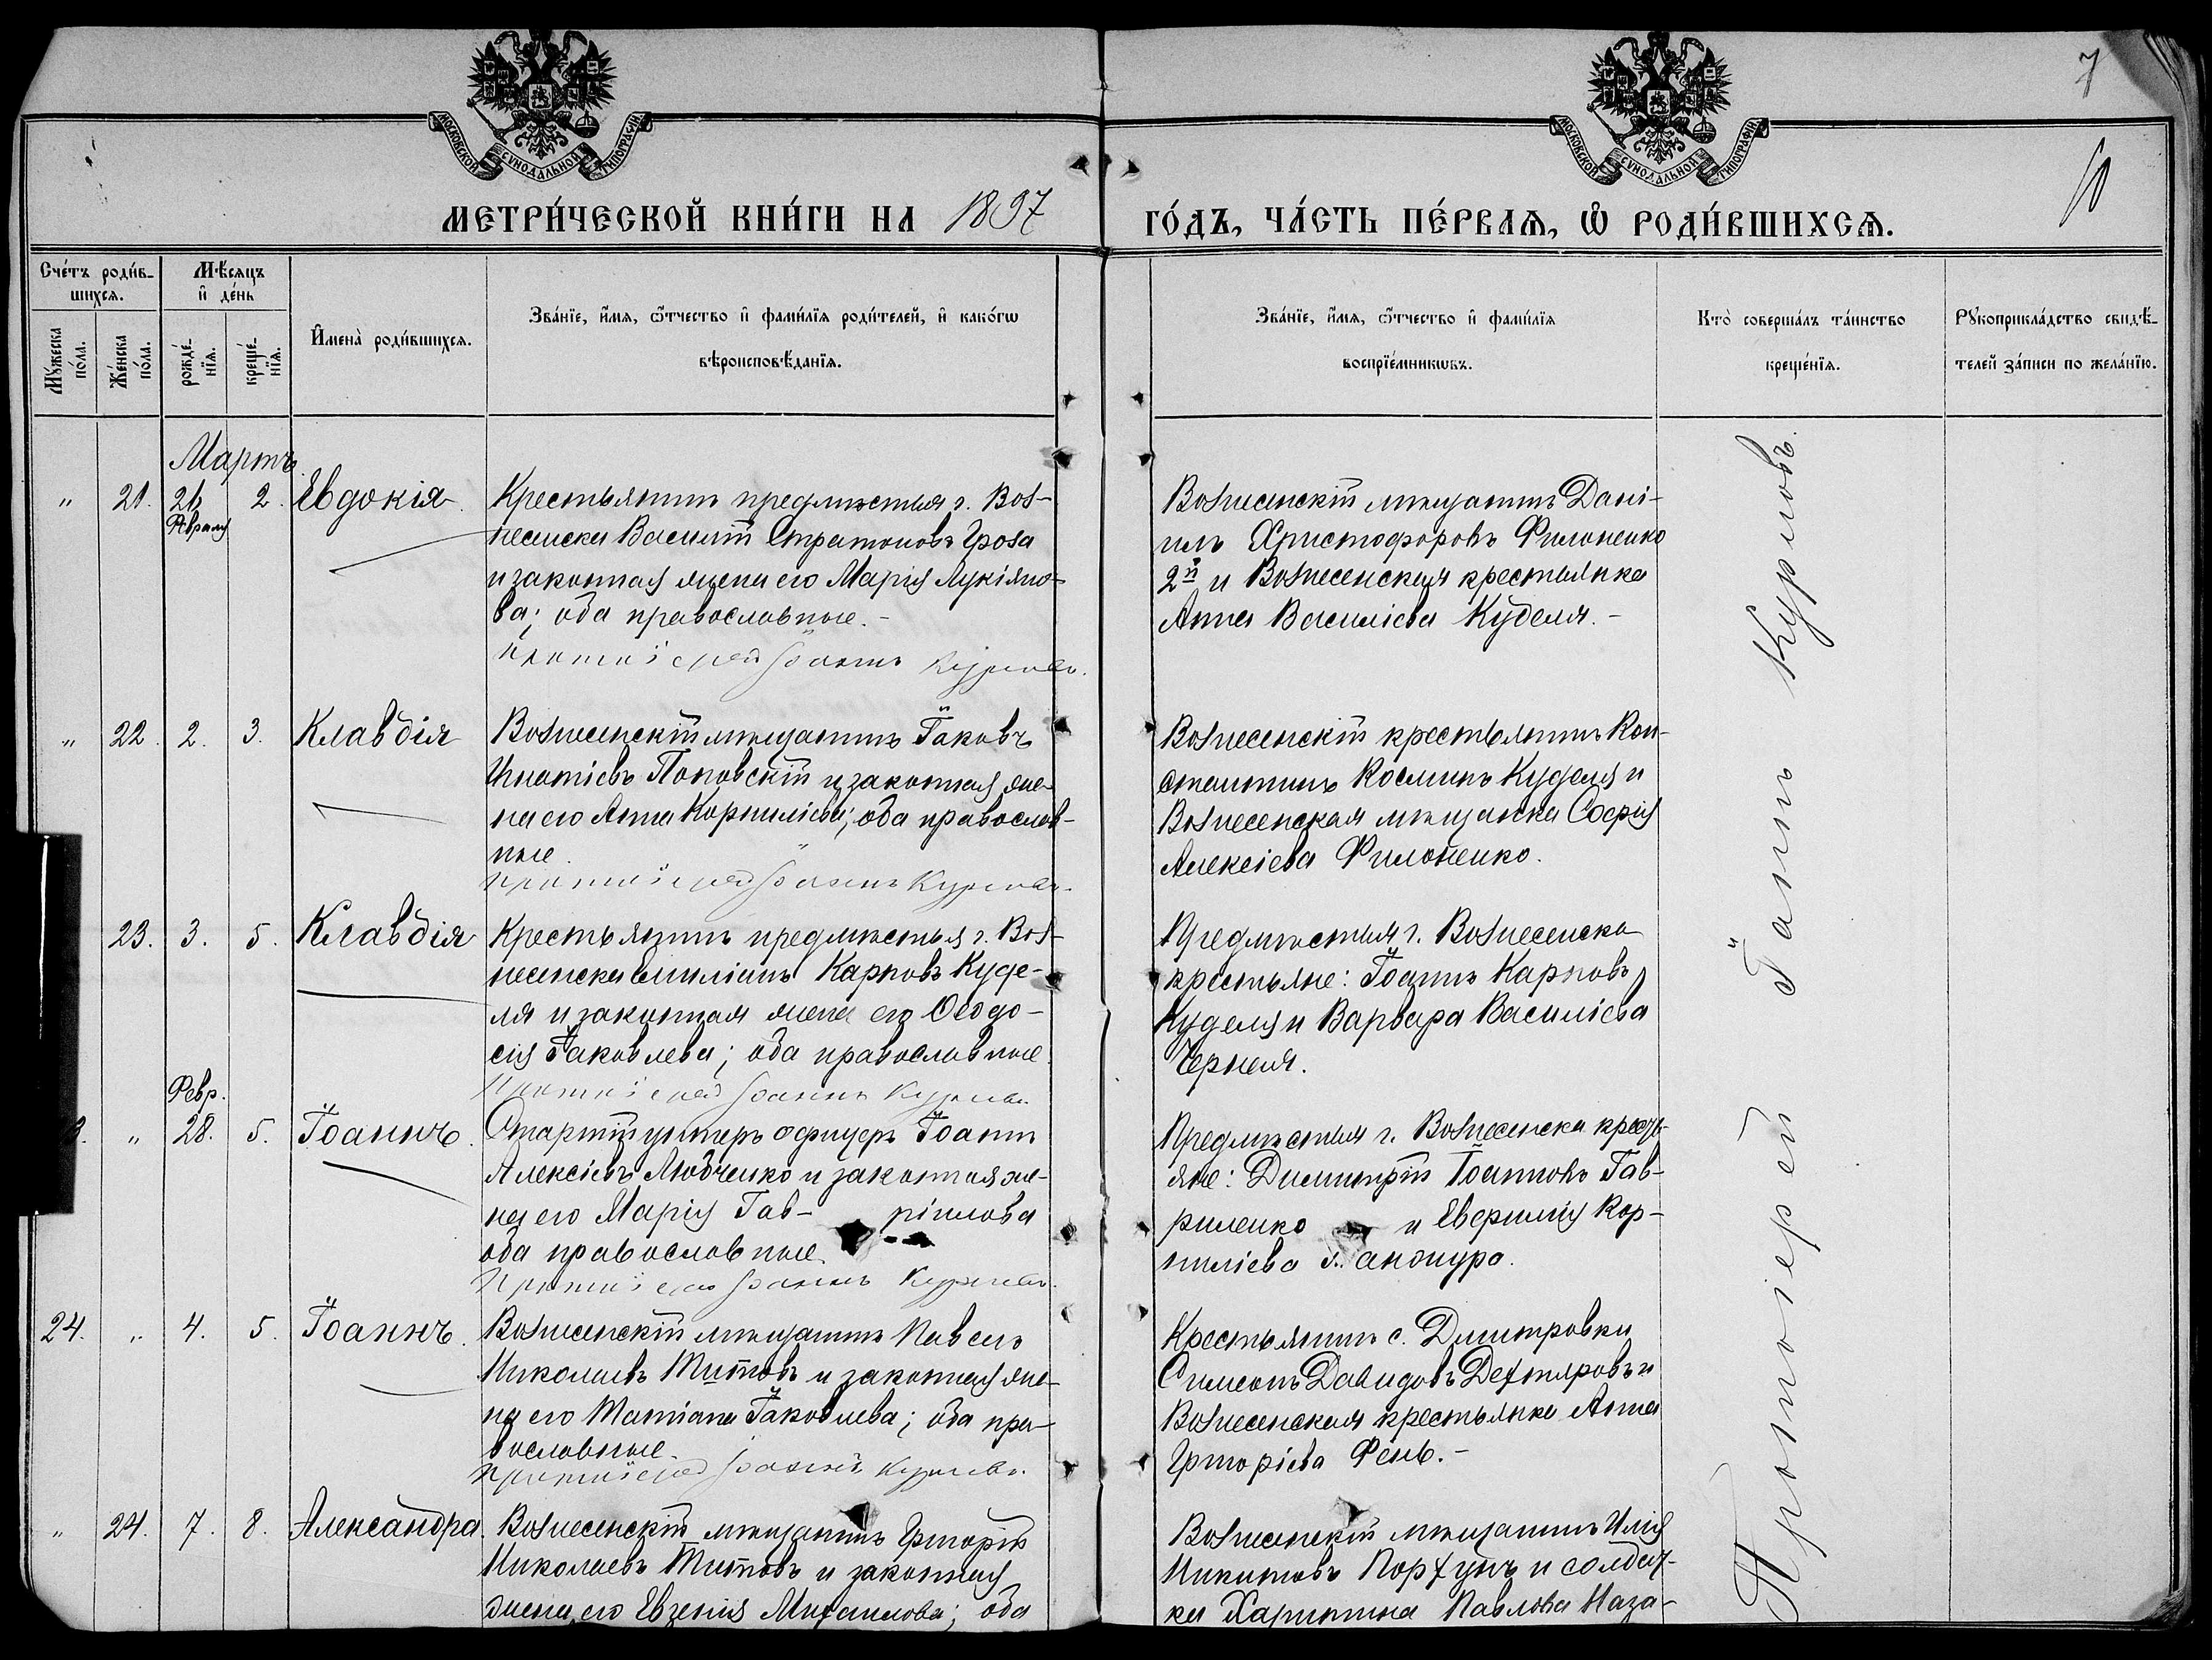 7
10
МОСКОВСКОЙ СѴНОДАЛЬНОЙ ТИПОГРАФІИ
МОСКОВСКОЙ СѴНОДАЛЬНОЙ ТИПОГРАФІИ
МЕТРИ́ЧЕСКОЙ КНИ́ГИ НА 1897 ГО́ДЪ, ЧА́СТЬ ПЕ́РВАѦ, Ѽ РОДИ́ВШИХСѦ.
Сче́тъ роди́в-
шихсѧ.
Мѣ́сѧцъ
и҆ де́нь
И҆мена̀ роди́вшихсѧ.
Зва́нїе, и҆́мѧ, ѻ҆́тчество и҆ фами́лїѧ роди́телей, и҆ како́гѡ
вѣроисповѣ́данїѧ.
Зва́нїе, и҆́мѧ, ѻ҆́тчество и҆ фами́лїѧ
воспрїе́мникѡвъ.
Кто̀ соверша́лъ та́инство
креще́нїѧ.
Рꙋкоприкла́дство свидѣ́-
телей за́писи по жела́нїю.
Мꙋ́жеска
по́ла.
Же́нска
по́ла.
рожде́-
нїѧ.
креще́-
нїѧ.
Мартъ
" 21. 26 2. Евдокія
Февраля
Крестьянинъ предмѣстья г. Воз-
несенска Василій Стратоновъ Гроза
и законная жена его Марія Лукіяно-
ва; оба православные.-
Протоіерей Іоаннъ Курловъ.
Вознесенскій мѣщанинъ Дані-
илъ Христофоровъ Филоненко
2й и Вознесенская крестьянка
Анна Василіева Куделя.-
" 22. 2. 3. Клавдія
Вознесенскій мѣщанинъ Іаковъ
Игнатіевъ Поповскій и законная же-
на его Анна Корниліева; оба православ-
ные.
Протоіерей Іоаннъ Курловъ.
Вознесенскій крестьянинъ Кон-
стантинъ Косминъ Куделя и
Вознесенская мѣщанка Софія
Алексіева Филоненко.
23. 3. 5. Клавдія
Крестьянинъ предмѣстья г. Воз-
несенска Емиліанъ Карповъ Куде-
ля и законная жена его Ѳеодо-
сія Іаковлева; оба православные.
Протоіерей Іоаннъ Курловъ.
Предмѣстья г. Вознесенска
крестьяне: Іоаннъ Карповъ
Куделя и Варвара Василіева
Черneля.
Февр.
" 28. 5. Іоаннъ.
Старшій унтеръ офицеръ Іоаннъ
Алексіевъ Любченко и законная же-
на его Марія Гав- ріилова
оба православные.
Протоіерей Іоаннъ Курловъ.
Предмѣстья г. Вознесенска кресть-
яне: Димитрій Іоанновъ Гав-
риленко и Евфимія Кор-
ниліева
24. " 4. 5. Іоаннъ.
Вознесенскій мѣщанинъ Павелъ
Николаевъ Титовъ и законная же-
на его Татіана Іаковлева; оба пра-
вославные.
Протоіерей Іоаннъ Курловъ.
Крестьянинъ с. Димитровки
Симеонъ Давидовъ Дехтяровъ и
Вознесенская крестьянка Анна
Григоріева Фень.-
" 24. 7. 8. Александра.
Вознесенскій мѣщанинъ Григорій
Николаевъ Титовъ и законная
жена его Евгенія Михаилова; оба
Вознесенскій мѣщанинъ Илія
Никитовъ Порхунъ и солдат-
ка Харитина Павлова Наза-
Протоіерей Іоаннъ Курловъ.